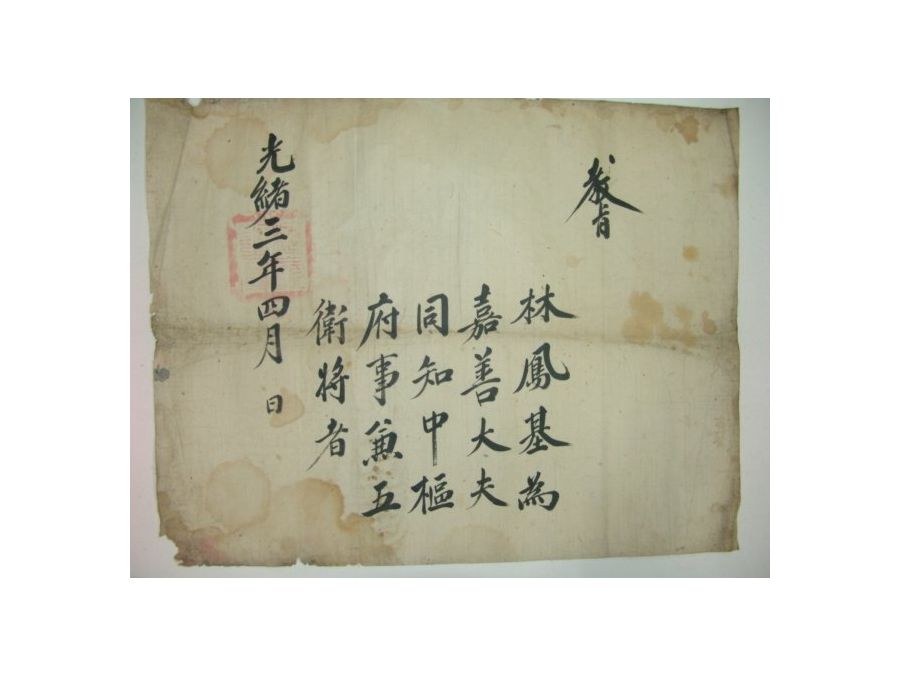 教旨
林鳳基為
嘉善大夫
同知中樞
府事兼五
衛將者
光緒三年四月 日